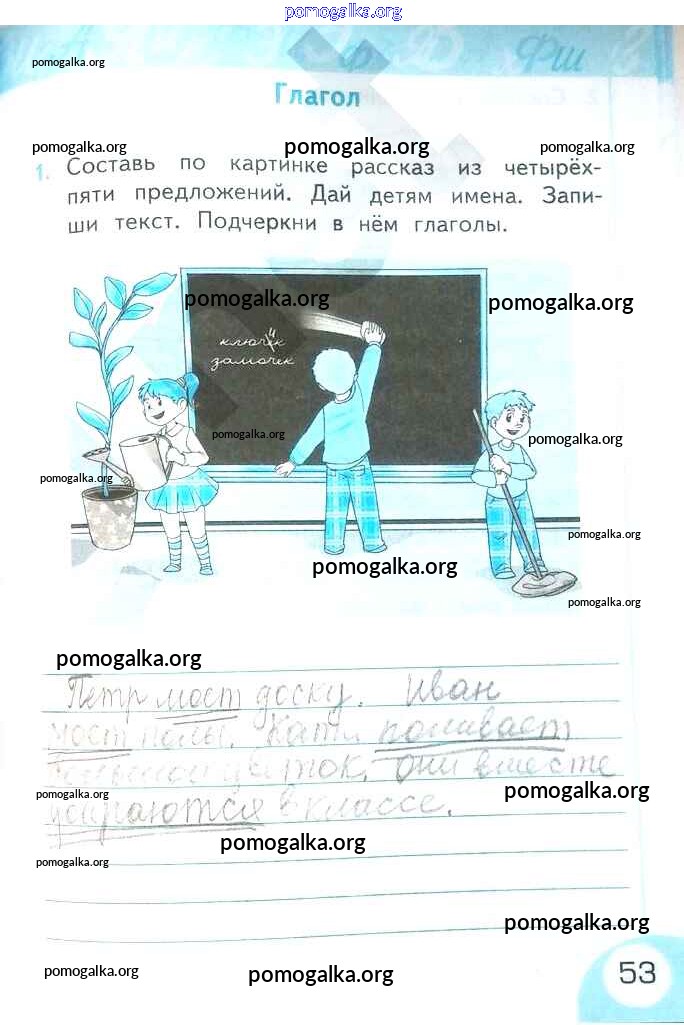 pomogalka.org
Фш
pomogalka.org
Глагол
pomogalka.org pomogalka.org pomogalka.org
1. Составь по картинке рассказ из четырёх-
пяти предложений. Дай детям имена. Запи-
ши текст. Подчеркни в нём глаголы.
pomogalka.org pomogalka.org
ключик
замочек
pomogalka.org pomogalka.org
pomogalka.org
pomogalka.org
pomogalka.org
pomogalka.org
pomogalka.org
Петр моет доску. Иван
моет полы. Катя поливает
большой цветок. Они вместе
pomogalka.org pomogalka.org
убираются в классе.
pomogalka.org
pomogalka.org
pomogalka.org
pomogalka.org pomogalka.org
53